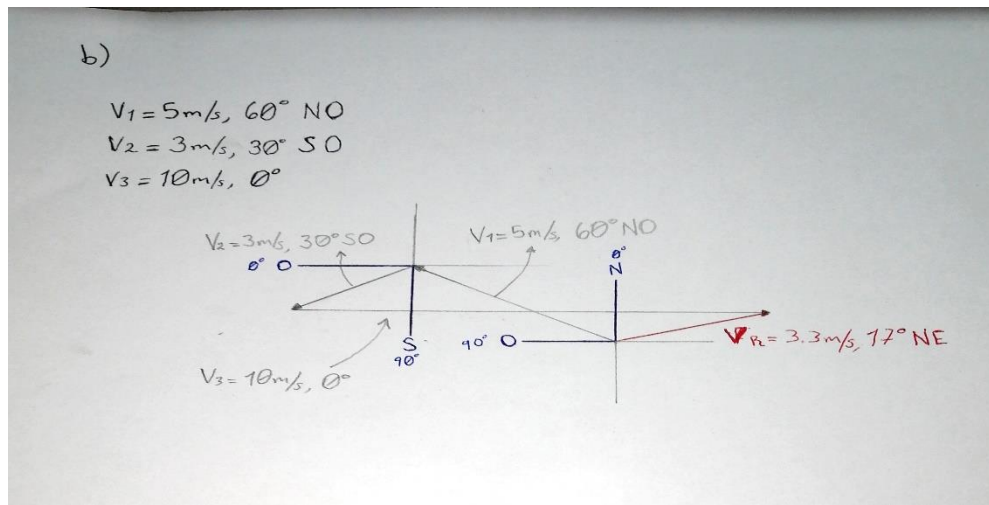 b)
V1 = 5m/s, 60° NO
V2 = 3m/s, 30° SO
V3 = 10m/s, 0°
V2 = 3m/s, 30° SO
V1 = 5m/s, 60° NO
0° O
0°
N
S
90°
90° O
VR = 3.3m/s, 17° NE
V3 = 10m/s, 0°